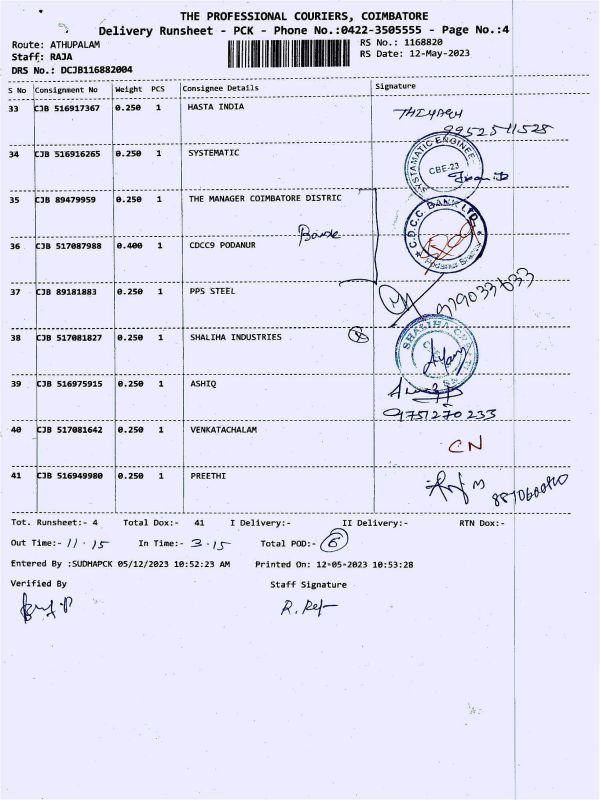 THE PROFESSIONAL COURIERS, COIMBATORE
Delivery Runsheet - PCK - Phone No.:0422-3505555 - Page No.:4
Route: ATHUPALAM RS No.: 1168820
Staff: RAJA RS Date: 12-May-2023
DRS No.: DCJB116882004
S No Consignment No Weight PCS Consignee Details Signature
33 CJB 516917367 0.250 1 HASTA INDIA
9952511528
34 CJB 516916265 0.250 1 SYSTEMATIC
SYSTAMATIC ENGINEE
CBE-23
35 CJB 89479959 0.250 1 THE MANAGER COIMBATORE DISTRIC
C.D.C.C BANK LTD.
Podanur Branch
36 CJB 517087988 0.400 1 CDCC9 PODANUR
37 CJB 89181883 0.250 1 PPS STEEL
38 CJB 517081827 0.250 1 SHALIHA INDUSTRIES
39 CJB 516975915 0.250 1 ASHIQ
9751270233
40 CJB 517081642 0.250 1 VENKATACHALAM
CN
41 CJB 516949980 0.250 1 PREETHI
Tot. Runsheet:- 4 Total Dox:- 41 I Delivery:- II Delivery:- RTN Dox:-
Out Time:- 11.15 In Time:- 3.15 Total POD:- 6
Entered By :SUDHAPCK 05/12/2023 10:52:23 AM Printed On: 12-05-2023 10:53:28
Verified By Staff Signature